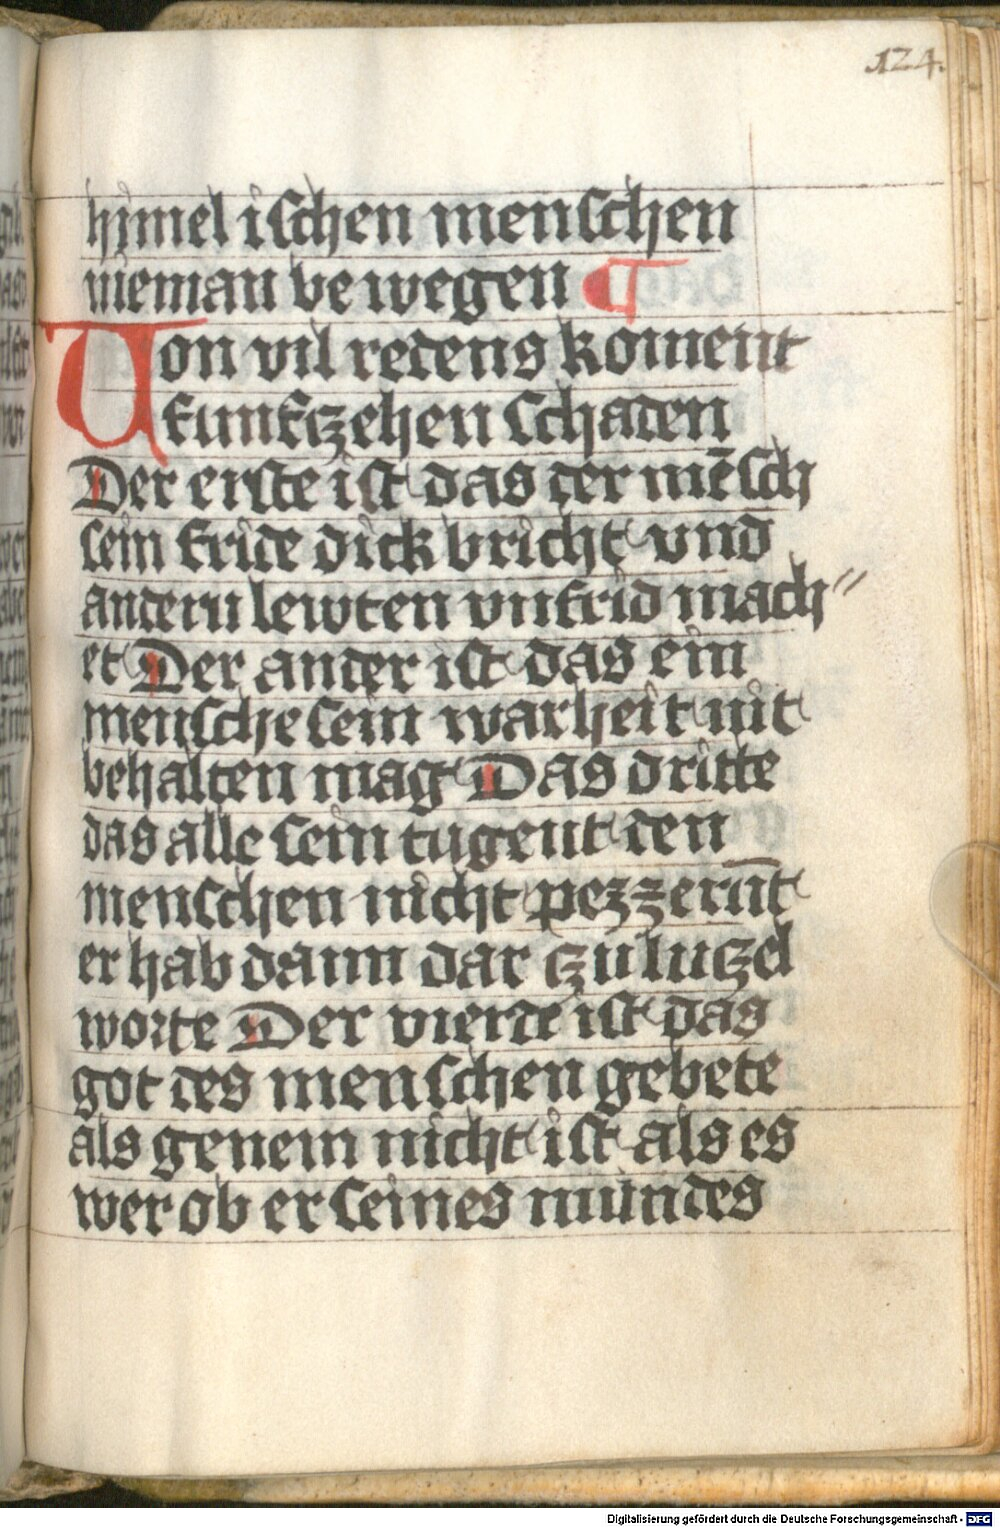 124.
himel ischen menschen
nieman bewegen ¶
Von vil redens koment
funfczehen schaden
Der erste ist das der mēsch
sein fride dick bricht vnd
andern lewten vnfrid mach〃
et Der ander ist das ein
mensche sein warheit nit
behalten mag Das dritte
das alle sein tugent den
menschen nicht pezzernt̄
er hab dann dar czu luczel
worte Der vierde ist das
got des menschen gebete
als genem nicht ist als es
wer ob er seines mundes
Digitalisierung gefördert durch die Deutsche Forschungsgemeinschaft - DFG